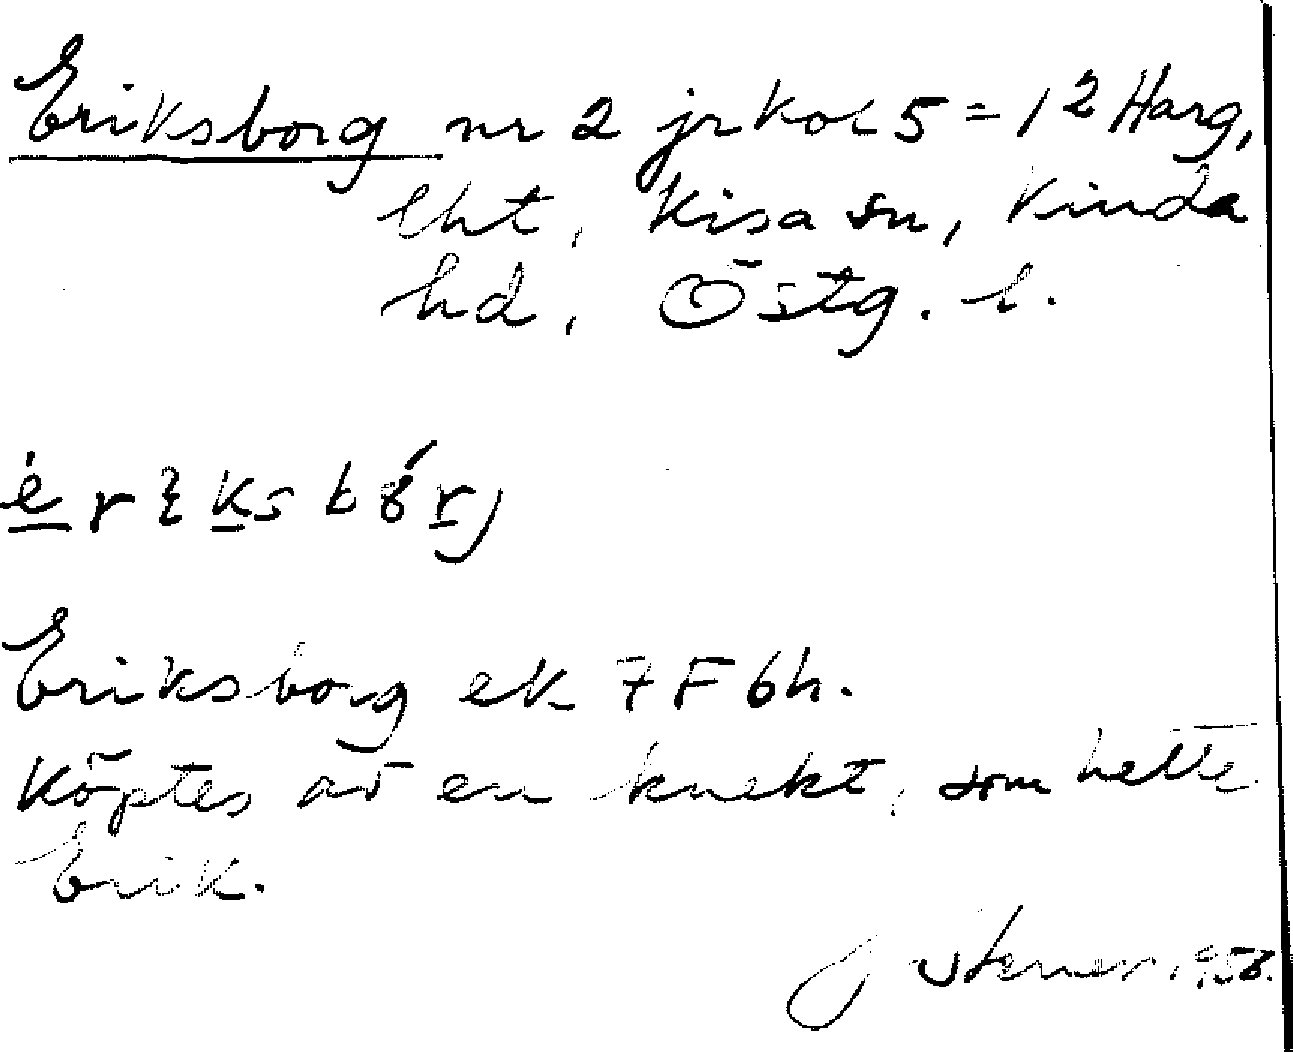 Eriksborg nr 2 jrkol 5 = 1² Harg,
lht, Kisa sn, Kinda
hd, Östg. l.
Eriksborg ek 7 F 6h.
Köptes av en knekt, som hette
Erik.
J